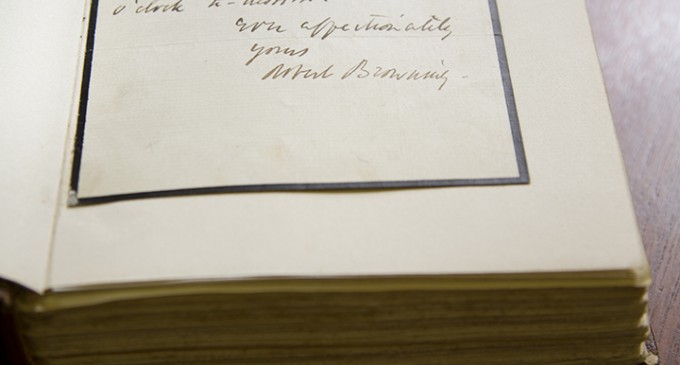 o'clock to-morrow.
ever affectionately
yours
Robert Browning.